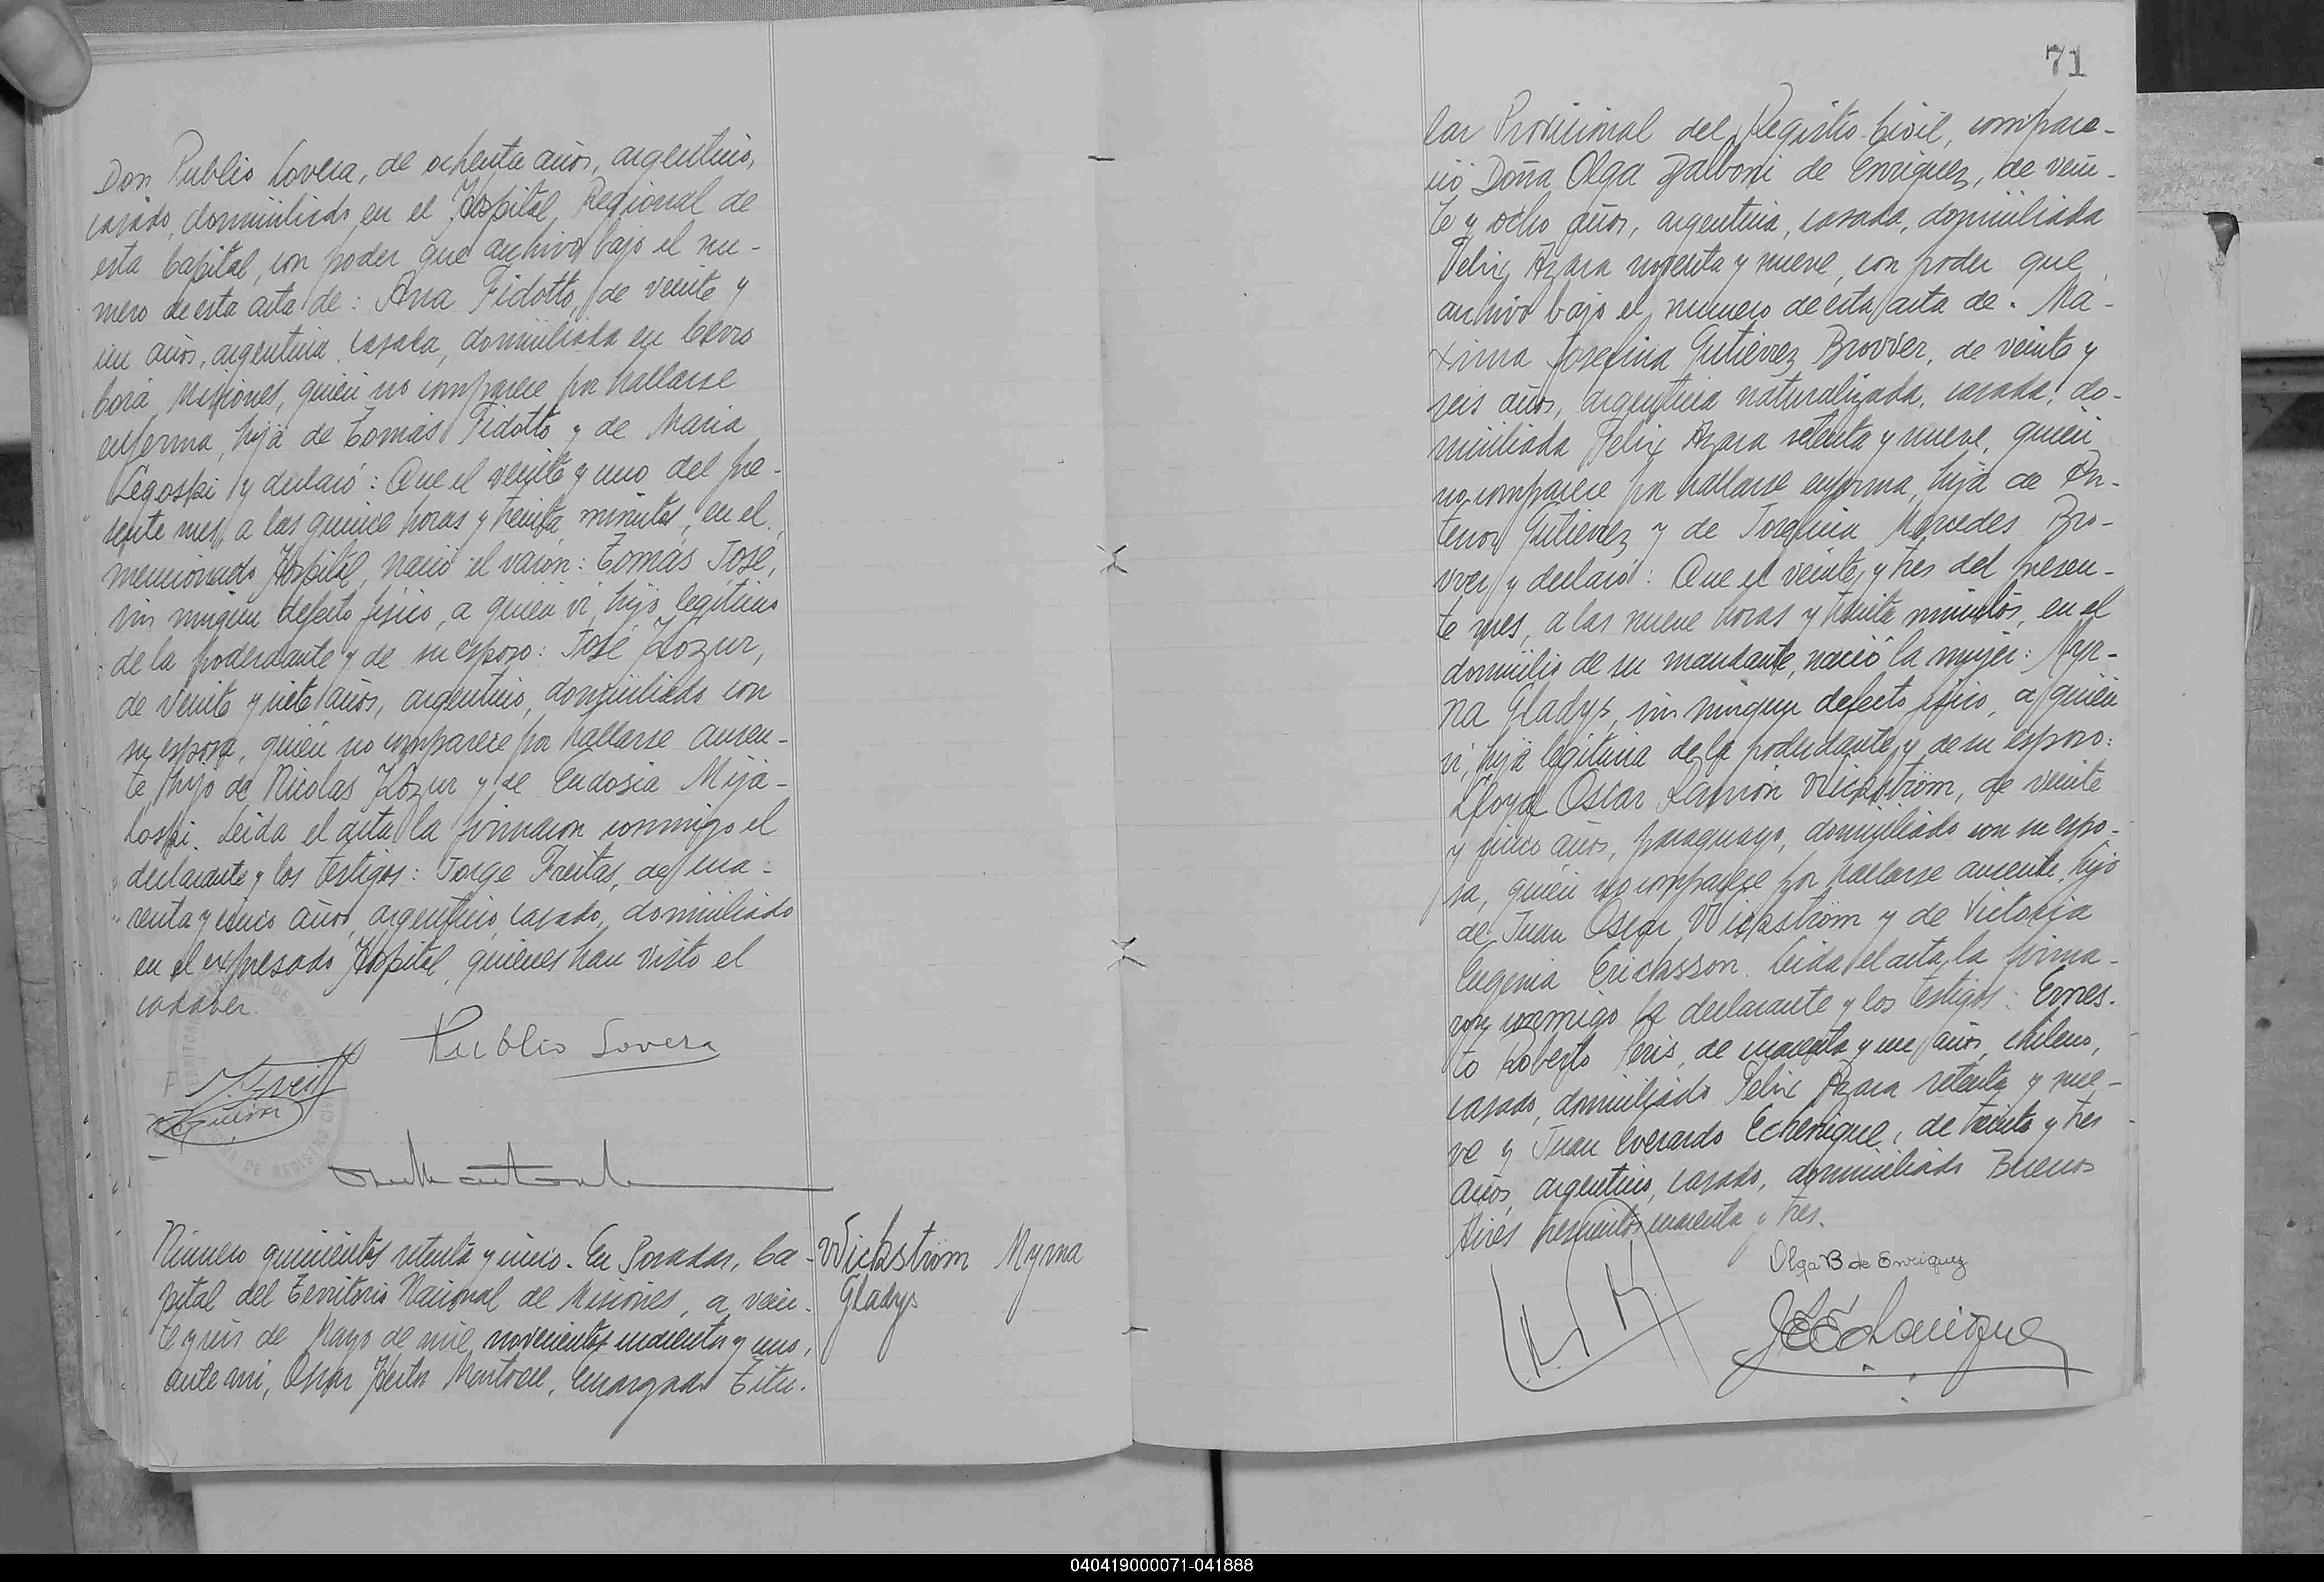 Don Publio Lovera, de ochenta años, argentino,
casado, domiciliado en el Hospital Regional de
esta Capital, con poder que archivo bajo el nu-
mero de esta acta de: Ana Fidotto, de veinte y
un años, argentina, casada, domiciliada en Cerro
Corá, Misiones, quién no comparece por hallarse
enferma, hija de Tomás Fidotto y de Maria
Legoski y declaró: Que el veinte y uno del pre-
sente mes, a las quince horas y treinta minutos, en el
mencionado Hospital, nació el varón: Tomás José,
sin ningun defecto físico, a quien vi, hijo legitimo
de la poderdante y de su esposo: José Kozur,
de veinte y siete años, argentino, domiciliado con
su esposa, quién no comparece por hallarse ausen-
te, hijo de Nicolas Kozur y de Eudosia Mija-
loski. Leida el acta la firmaron conmigo el
declarante y los testigos: Jorge Freitas, de cua-
renta y cinco años, argentino, casado, domiciliado
en el expresado Hospital, quienes han visto el
cadaver.
Publio Lovera
Número quinientos setenta y cinco. En Posadas, Ca-
pital del Territorio Nacional de Misiones, a vein-
te y seis de Mayo de mil novecientos cuarenta y uno,
ante mi, Oscar Encargado Titu-
Wickström Myrna
Gladys
71
lar Provisional del Registro Civil, compare-
ció Doña Olga Balboni de Enriquez, de vein-
te y ocho años, argentina, casada, domiciliada
Felix Azara noventa y nueve, con poder que
archivo bajo el numero de esta acta de: Má-
xima Josefina Gutiérrez Brovver, de veinte y
seis años, argentina naturalizada, casada, do-
miciliada Felix Azara setenta y nueve, quién
no comparece por hallarse enferma, hija de An-
tenor Gutierrez y de Joaquina Mercedes Bro-
vver y declaró: Que el veinte y tres del presen-
te mes, a las nueve horas y treinta minutos, en el
domicilio de su mandante, nació la mujer: Myr-
na Gladys, sin ningun defecto físico, a quién
vi, hija legitima de la poderdante y de su esposo:
Lloyd Oscar Ramón Wickström, de veinte
y cinco años, paraguayo, domiciliado con su espo-
sa, quién no comparece por hallarse ausente, hijo
de Juan Oscar Wickström y de Victoria
Eugenia Ericksson. Leida el acta, la firma-
ron conmigo la declarante y los testigos: Ernes-
to Roberto Peris, de cuarenta y un años, chileno,
casado, domiciliado Felix Azara setenta y nue-
ve y Juan Everardo Echenique, de treinta y tres
años, argentino, casado, domiciliado Buenos
Aires trescientos cuarenta y tres.
Olga B de Enriquez
040419000071-041888